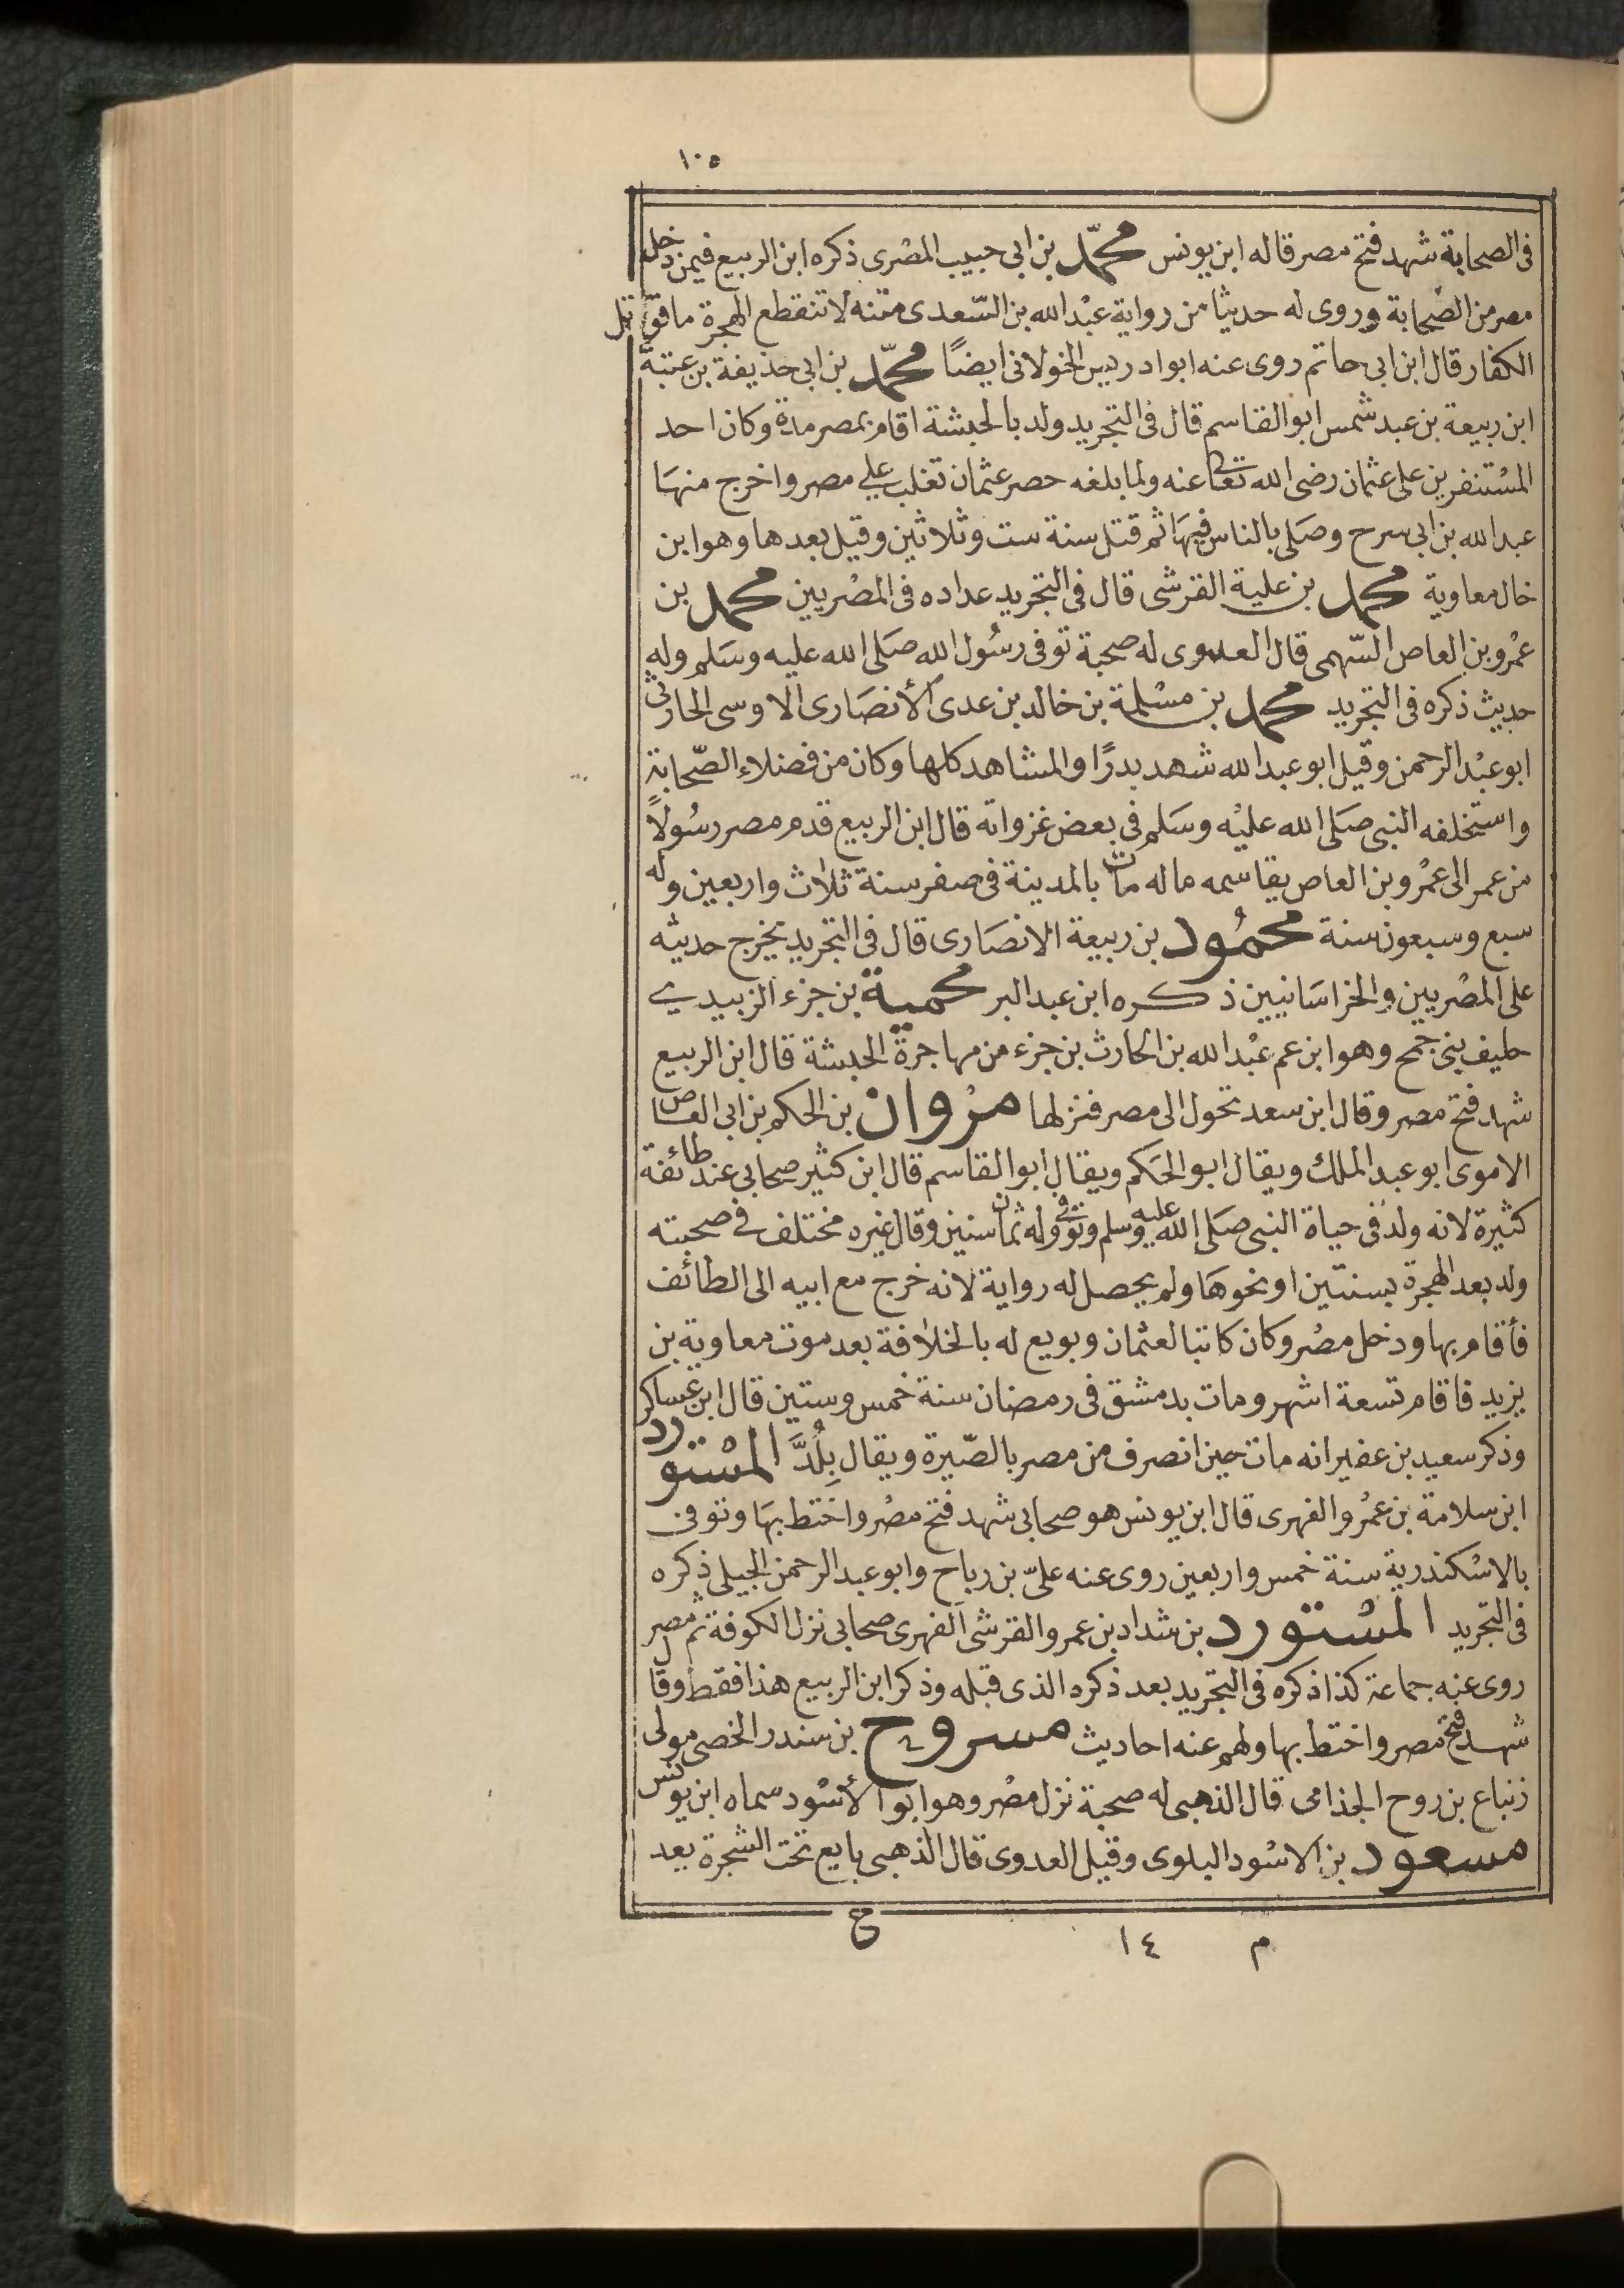 ١٠٥
فى الصحابة شهد فتح مصر قاله ابن يونس محمّد بن ابى حبيب المصرى ذكره ابن الربيع فيمن دخل
مصر من الصحابة وروى له حديثا من رواية عبد الله بن السّعدى متنه لا تنقطع الهجرة ما قوتل
الكفار قال ابن ابى حاتم روى عنه ابو ادريس الخولانى ايضًا محمّد بن ابى حذيفة بن عتبة
ابن ربيعة بن عبد شمس ابو القاسم قال فى التجريد ولد بالحبشة اقام بمصر مدة وكان احد
المستنفرين على عثمان رضى الله تعالى عنه ولما بلغه حصر عثمان تغلب على مصر واخرج منها
عبد الله بن ابى سرح وصلى بالناس فيها ثم قتل سنة ست وثلاثين وقيل بعدها وهو ابن
خال معاوية محمد بن علية القرشى قال فى التجريد عداده فى المصريين محمد بن
عمرو بن العاص السّهمى قال العدوى له صحبة توفى رسول الله صلى الله عليه وسلم وله
حديث ذكره فى التجريد محمد بن مسلمة بن خالد بن عدى الأنصارى الاوسى الحارثى
ابو عبد الرحمن وقيل ابو عبد الله شهد بدرًا والمشاهد كلها وكان من فضلاء الصّحابة
واستخلفه النبى صلى الله عليه وسلم فى بعض غزواته قال ابن الربيع قدم مصر رسولاً
من عمر الى عمرو بن العاص يقاسمه ماله مات بالمدينة فى صفر سنة ثلاث واربعين وله
سبع وسبعون سنة محمُود بن ربيعة الانصارى قال فى التجريد يخرج حديثه
على المصريين والخراسانيين ذكره ابن عبد البر محمية بن جزء الزبيدى
حليف بنى جمح وهو ابن عم عبد الله بن الحارث بن جزء من مهاجرة الحبشة قال ابن الربيع
شهد فتح مصر وقال ابن سعد تحول الى مصر فنزلها مروان بن الحكم بن ابى العاص
الاموى ابو عبد الملك ويقال ابو الحكم ويقال ابو القاسم قال ابن كثير صحابى عند طائفة
كثيرة لانه ولد فى حياة النبى صلى الله عليه وسلم وتوفى وله ثمان سنين وقال غيره مختلف فى صحبته
ولد بعد الهجرة بسنتين او نحوها ولم يحصل له رواية لانه خرج مع ابيه الى الطائف
فأقام بها ودخل مصر وكان كاتبا لعثمان وبويع له بالخلافة بعد موت معاوية بن
يزيد فاقام تسعة اشهر ومات بدمشق فى رمضان سنة خمس وستين قال ابن عساكر
وذكر سعيد بن عفير انه مات حين انصرف من مصر بالصّيرة ويقال بِلُدَّ المستورد
ابن سلامة بن عمرو الفهرى قال ابن يونس هو صحابى شهد فتح مصر واختط بها وتوفى
بالاسكندرية سنة خمس واربعين روى عنه علىّ بن رباح وابو عبد الرحمن الجيلى ذكره
فى التجريد المستورد بن شداد بن عمرو القرشى الفهرى صحابى نزل الكوفة ثم مصر
روى عنه جماعة كذا ذكره فى التجريد بعد ذكره الذى قبله وذكر ابن الربيع هذا فقط وقال
شهد فتح مصر واختط بها ولهم عنه احاديث مسروح بن سندر الخصى مولى
زنباع بن روح الجذامى قال الذهبى له صحبة نزل مصر وهو ابو الأسود سماه ابن يونس
مسعود بن الاسود البلوى وقيل العدوى قال الذهبى بايع تحت الشجرة يعد
ع
م ١٤